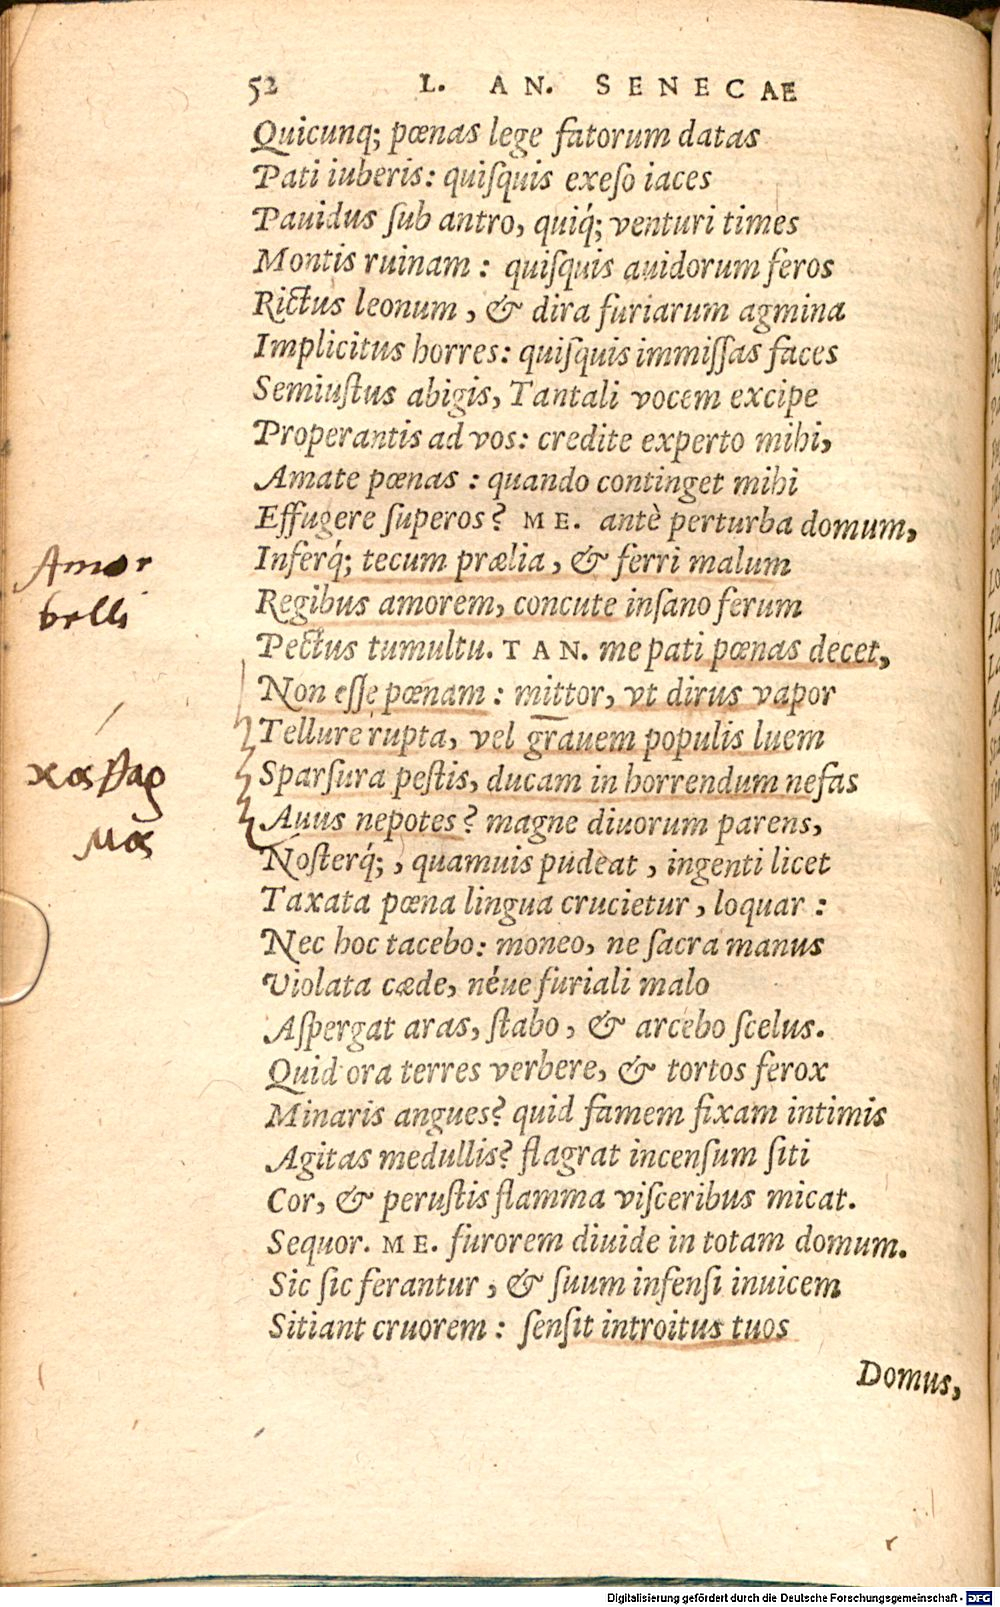 52 L. AN. SENECAE
Quicunq; pœnas lege fatorum datas
Pati iuberis: quiſquis exeſo iaces
Pauidus ſub antro, quiq́; venturi times
Montis ruinam: quiſquis auidorum feros
Rictus leonum, & dira furiarum agmina
Implicitus horres: quiſquis immiſſas faces
Semiuſtus abigis, Tantali vocem excipe
Properantis ad vos: credite experto mihi,
Amate pœnas: quando continget mihi
Effugere ſuperos? ME. antè perturba domum,
Inferq́; tecum prælia, & ferri malum
Amor
Regibus amorem, concute inſano ferum
belli
Pectus tumultu. TAN. me pati pœnas decet,
Non eſſe pœnam: mittor, vt dirus vapor
Tellure rupta, vel grauem populis luem
Sparſura peſtis, ducam in horrendum nefas
Auus nepotes? magne diuorum parens,
Noſterq́;, quamuis pudeat, ingenti licet
Taxata pœna lingua crucietur, loquar:
Nec hoc tacebo: moneo, ne ſacra manus
Violata cæde, néue furiali malo
Aſpergat aras, ſtabo, & arcebo ſcelus.
Quid ora terres verbere, & tortos ferox
Minaris angues? quid famem fixam intimis
Agitas medullis? flagrat incenſum ſiti
Cor, & peruſtis flamma viſceribus micat.
Sequor. ME. furorem diuide in totam domum.
Sic ſic ferantur, & ſuum infenſi inuicem
Sitiant cruorem: ſenſit introitus tuos
Domus,
Digitalisierung gefördert durch die Deutsche Forschungsgemeinschaft - DFG